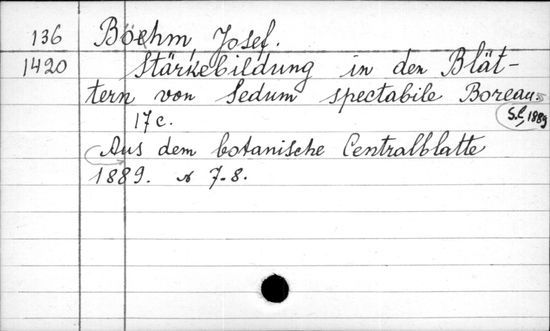 136 Böehm, Josef.
1420 Stärkebildung in den Blät-
tern von Sedum spectabile Boreau
17 c. S.l, 1889
Aus dem botanische Centralblatte
1889. № 7-8.